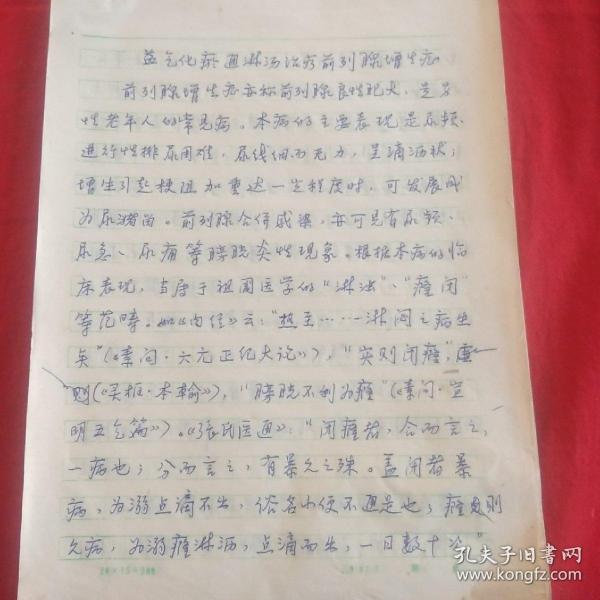 益气化瘀通淋汤治疗前列腺增生症
前列腺增生症亦称前列腺良性肥大，是男
性老年人的常见病。本病的主要表现是尿频、
进行性排尿困难，尿线细而无力，呈滴沥状；
增生引起梗阻加重达一定程度时，可发展成
为尿潴留。前列腺合併感染，亦可见有尿频、
尿急、尿痛等膀胱炎性现象。根据本病的临
床表现，当属于祖国医学的“淋浊”、“癃闭”
等范畴。如《内经》云：“热至……淋闷之病生
矣”（《素问·六元正纪大论》），“实则闭癃，虚
则（《灵枢·本输》），“膀胱不利为癃”（《素问·宣
明五气篇》）。《张氏医通》：“闭癃者，合而言之，
一病也；分而言之，有暴久之殊。盖闭者暴
病，为溺点滴不出，俗名小便不通是也；癃则
久病，为溺癃淋沥，点滴而出，一日数十次”
孔夫子旧书网
www.kongfz.com